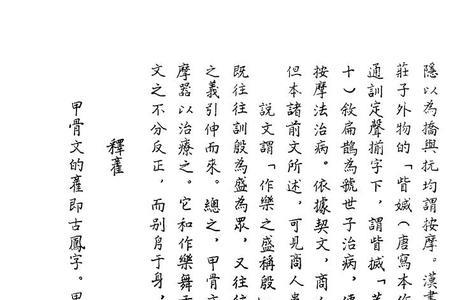 隱以為撟與抗均謂按摩。漢書
莊子外物的「眥媙（唐寫本作
通訓定聲揃字下，謂眥搣「
十）敘扁鵲為虢世子治病，
按摩法治病。依據契文，商人
但本諸前文所述，可見商人患
說文謂「作樂之盛稱殷
既往往訓殷為盛為眾，又往往
之義引伸而來。總之，甲骨文
摩器以治療之。它和作樂舞
文之不分反正，而別㐆于身，
釋雈
甲骨文的雈即古鳳字。甲